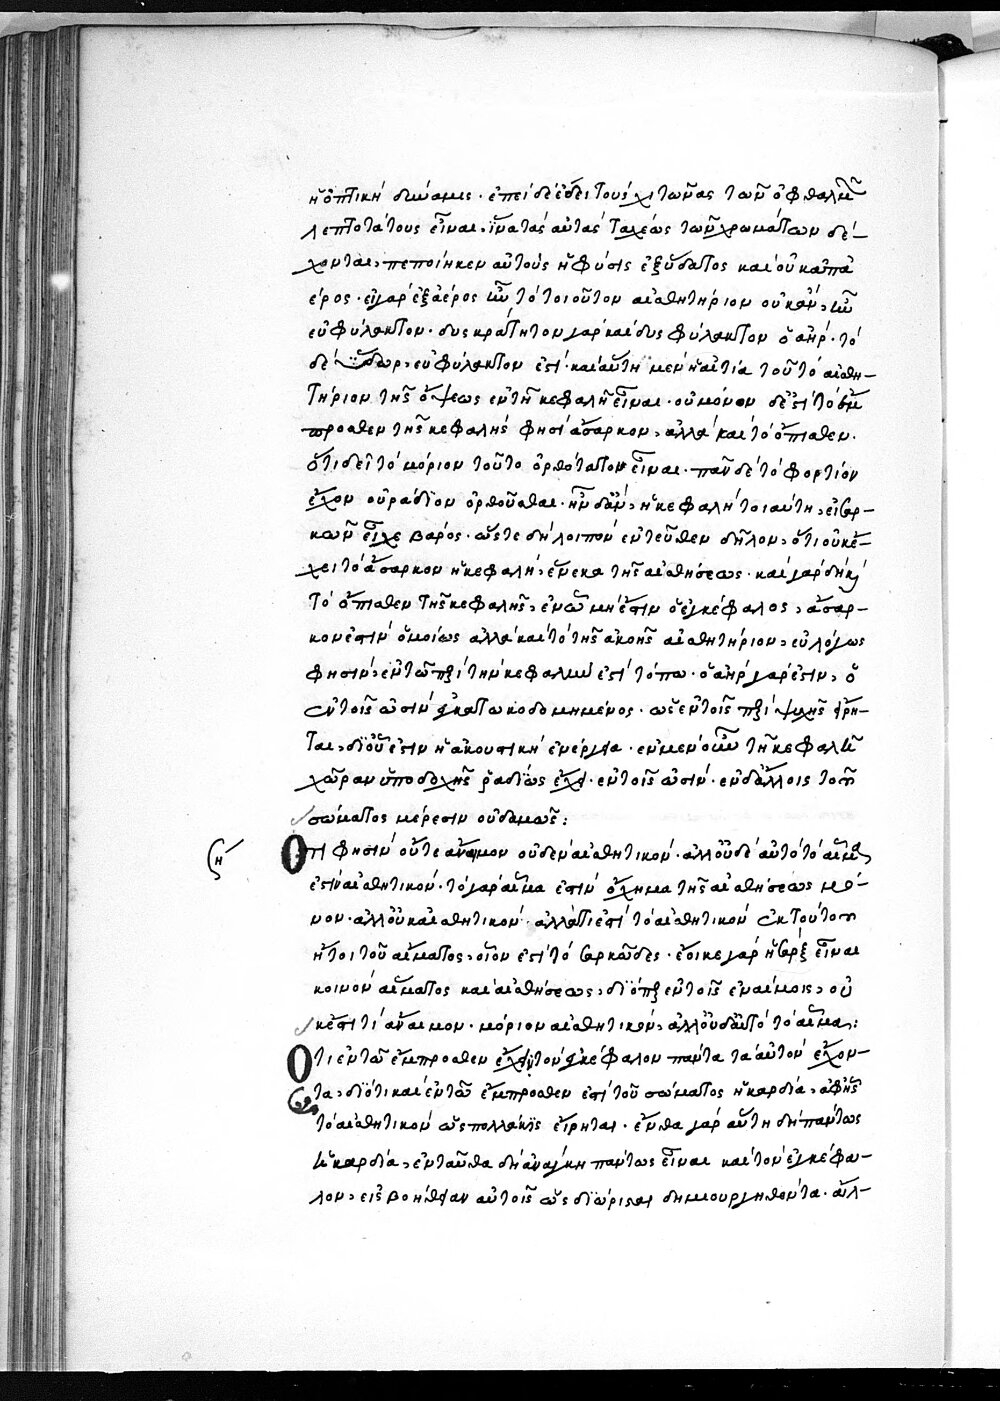 ἡ ὀπτικὴ δύναμις· ἐπεὶ δὲ ἔδει τοὺς χιτῶνας τῶν ὀφθαλμῶν
λεπτοτάτους εἶναι, ἵνα τὰς αὐτὰς ταχέως τῶν χρωμάτων δέ-
χωνται, πεποίηκεν αὐτοὺς ἡ φύσις ἐξ ὕδατος καὶ οὐκ ἀπὸ
ἀέρος· εἰ γὰρ ἐξ ἀέρος ἦν τὸ τοιοῦτον αἰσθητήριον οὐκ ἂν ἦν
εὐφύλακτον· δυσκράτητον γὰρ καὶ δυσφύλακτον ὁ ἀήρ· τὸ
δὲ ὕδωρ, εὐφύλακτον ἐστί· καὶ αὕτη μὲν ἡ αἰτία τοῦ τὸ αἰσθη-
τήριον τῆς ὄψεως ἐν τῇ κεφαλῇ εἶναι· οὐ μόνον δέ ἐστι τὸ
ἔμπροσθεν τῆς κεφαλῆς φησὶ ἄσαρκον, ἀλλὰ καὶ τὸ ὄπισθεν·
ὅτι δεῖ τὸ μόριον τοῦτο ὀρθότατον εἶναι· πᾶν δὲ τὸ φορτίον
ἔχον οὐ ῥάδιον ὀρθοῦσθαι· ἦν δ' ἂν ἡ κεφαλὴ τοιαύτη, εἰ σαρ-
κῶν εἶχε βάρος· ὥστε δὴ λοιπὸν ἐντεῦθεν δῆλον, ὅτι οὐκ ἔ-
χει τὸ ἄσαρκον ἡ κεφαλὴ, ἕνεκα τῆς αἰσθήσεως· καὶ γὰρ δὴ καὶ
τὸ ὄπισθεν τῆς κεφαλῆς, ἐν ᾧ μή ἐστιν ὁ ἐγκέφαλος, ἄσαρ-
κον ἐστὶν ὁμοίως ἀλλὰ καὶ τὸ τῆς ἀκοῆς αἰσθητήριον, εὐλόγως
φησὶν, ἐν τῷ περὶ τὴν κεφαλὴν ἐστὶ τόπῳ· ὁ ἀὴρ γάρ ἐστιν, ὁ
ἐν τοῖς ὠσὶν ἐγκατῳκοδομημένος· ὡς ἐν τοῖς περὶ ψυχῆς εἴρη-
ται, δι' οὗ ἐστιν ἡ ἀκουστικὴ ἐνέργεια· ἐν μὲν οὖν τῇ κεφαλῇ
χώραν ὑποδοχῆς ῥαδίως ἔχει· ἐν τοῖς ὠσίν· ἐν δ' ἄλλοις τοῦ
σώματος μέρεσιν οὐδαμῶς:
η
Ὅτι φησὶν οὔτε ἄναιμον οὐδὲν αἰσθητικόν· ἀλλ' οὐδὲ αὐτὸ τὸ αἷμα
ἐστὶν αἰσθητικόν· τὸ γὰρ αἷμα ἐστὶν ὄχημα τῆς αἰσθήσεως μό-
νον· ἀλλ' οὐκ αἰσθητικόν· ἀλλά τι ἐστὶ τὸ αἰσθητικὸν ἐκ τούτου
ἤτοι τοῦ αἵματος, οἷον ἐστὶ τὸ σαρκῶδες· ἔοικε γὰρ ἡ σὰρξ εἶναι
κοινὸν αἵματος καὶ αἰσθήσεως, διόπερ ἐν τοῖς ἐναίμοις, οὐ
κ ἔστι τὶ ἄναιμον· μόριον αἰσθητικὸν, ἀλλ' οὐδ' αὐτὸ τὸ αἷμα:
Ὅτι ἐν τῷ ἔμπροσθεν ἔχει τὸν ἐγκέφαλον πάντα τὰ αὐτὸν ἔχον-
τα, διότι καὶ ἐν τῷ ἔμπροσθεν ἐστὶ τοῦ σώματος ἡ καρδία, ἀφ' ἧς
τὸ αἰσθητικὸν ὡς πολλάκις εἴρηται· ἔνθα γὰρ αὕτη δὴ πάντως
ἡ καρδία, ἐνταῦθα δὴ ἀνάγκη πάντως εἶναι καὶ τὸν ἐγκέφα-
λον, εἰς βοήθειαν αὐτοῖς ὡς διώρισται δημιουργηθέντα· ἀλ-